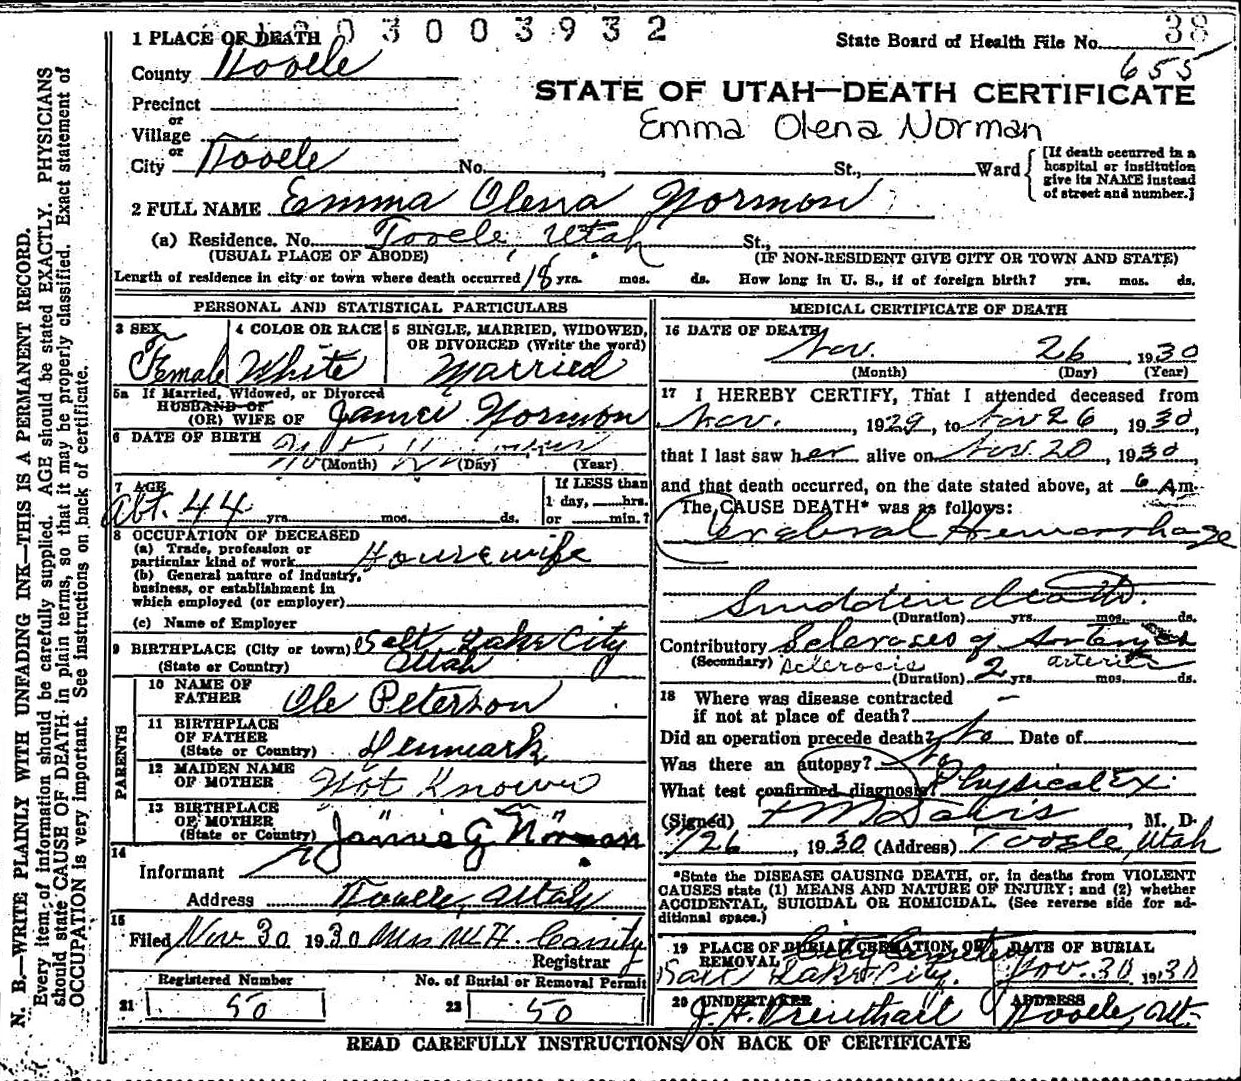 0 3 0 0 3 9 3 2
38
1 PLACE OF DEATH
State Board of Health File No.
655
County Tooele
STATE OF UTAH—DEATH CERTIFICATE
Precinct
or
Village
Emma Olena Norman
or
City Tooele No. , St., Ward
[If death occurred in a hospital or institution give its NAME instead of street and number.]
2 FULL NAME Emma Olena Norman
(a) Residence. No. Tooele, Utah St.,
(USUAL PLACE OF ABODE) (IF NON-RESIDENT GIVE CITY OR TOWN AND STATE)
Length of residence in city or town where death occurred 18 yrs. mos. ds. How long in U. S., if of foreign birth? yrs. mos. ds.
PERSONAL AND STATISTICAL PARTICULARS
3 SEX
Female
4 COLOR OR RACE
White
5 SINGLE, MARRIED, WIDOWED, OR DIVORCED (Write the word)
Married
5a If Married, Widowed, or Divorced
HUSBAND OF
(OR) WIFE OF James Norman
6 DATE OF BIRTH
(Month) (Day) (Year)
7 AGE
Abt. 44 yrs. mos. ds.
If LESS than
1 day, hrs.
or min.?
8 OCCUPATION OF DECEASED
(a) Trade, profession or
particular kind of work Housewife
(b) General nature of industry,
business, or establishment in
which employed (or employer)
(c) Name of Employer
9 BIRTHPLACE (City or town) Salt Lake City
(State or Country) Utah
PARENTS
10 NAME OF
FATHER Ole Peterson
11 BIRTHPLACE
OF FATHER
(State or Country) Denmark
12 MAIDEN NAME
OF MOTHER Not Known
13 BIRTHPLACE
OF MOTHER
(State or Country)
James G Norman
14
Informant
Address Tooele, Utah
15
Filed Nov 30 1930 Mrs M.H. Cassity
Registrar
Registered Number No. of Burial or Removal Permit
21 50 22 50
MEDICAL CERTIFICATE OF DEATH
16 DATE OF DEATH
Nov. 26, 1930
(Month) (Day) (Year)
17 I HEREBY CERTIFY, That I attended deceased from
Nov. , 1929, to Nov 26, 1930,
that I last saw her alive on Nov. 20, 1930,
and that death occurred, on the date stated above, at 6 Am.
The CAUSE DEATH* was as follows:
Cerebral Hemorrhage
Sudden death.
(Duration) yrs. mos. ds.
Contributory Scleroses of
(Secondary) sclerosis arteries
(Duration) 2 yrs. mos. ds.
18 Where was disease contracted
if not at place of death? —
Did an operation precede death? No Date of
Was there an autopsy? No
What test confirmed diagnosis? Physical Ex
(Signed) Davis, M. D.
11/26, 1930 (Address) Tooele, Utah
*State the DISEASE CAUSING DEATH, or, in deaths from VIOLENT
CAUSES state (1) MEANS AND NATURE OF INJURY; and (2) whether
ACCIDENTAL, SUICIDAL OR HOMICIDAL. (See reverse side for ad-
ditional space.)
19 PLACE OF BURIAL, CREMATION OR
REMOVAL City Cemetery
Salt Lake City.
DATE OF BURIAL
Nov. 30 1930
20 UNDERTAKER
ADDRESS
Tooele, Ut.
READ CAREFULLY INSTRUCTIONS ON BACK OF CERTIFICATE
N. B.—WRITE PLAINLY WITH UNFADING INK—THIS IS A PERMANENT RECORD.
Every item of information should be carefully supplied. AGE should be stated EXACTLY. PHYSICIANS
should state CAUSE OF DEATH in plain terms, so that it may be properly classified. Exact statement of
OCCUPATION is very important. See instructions on back of certificate.